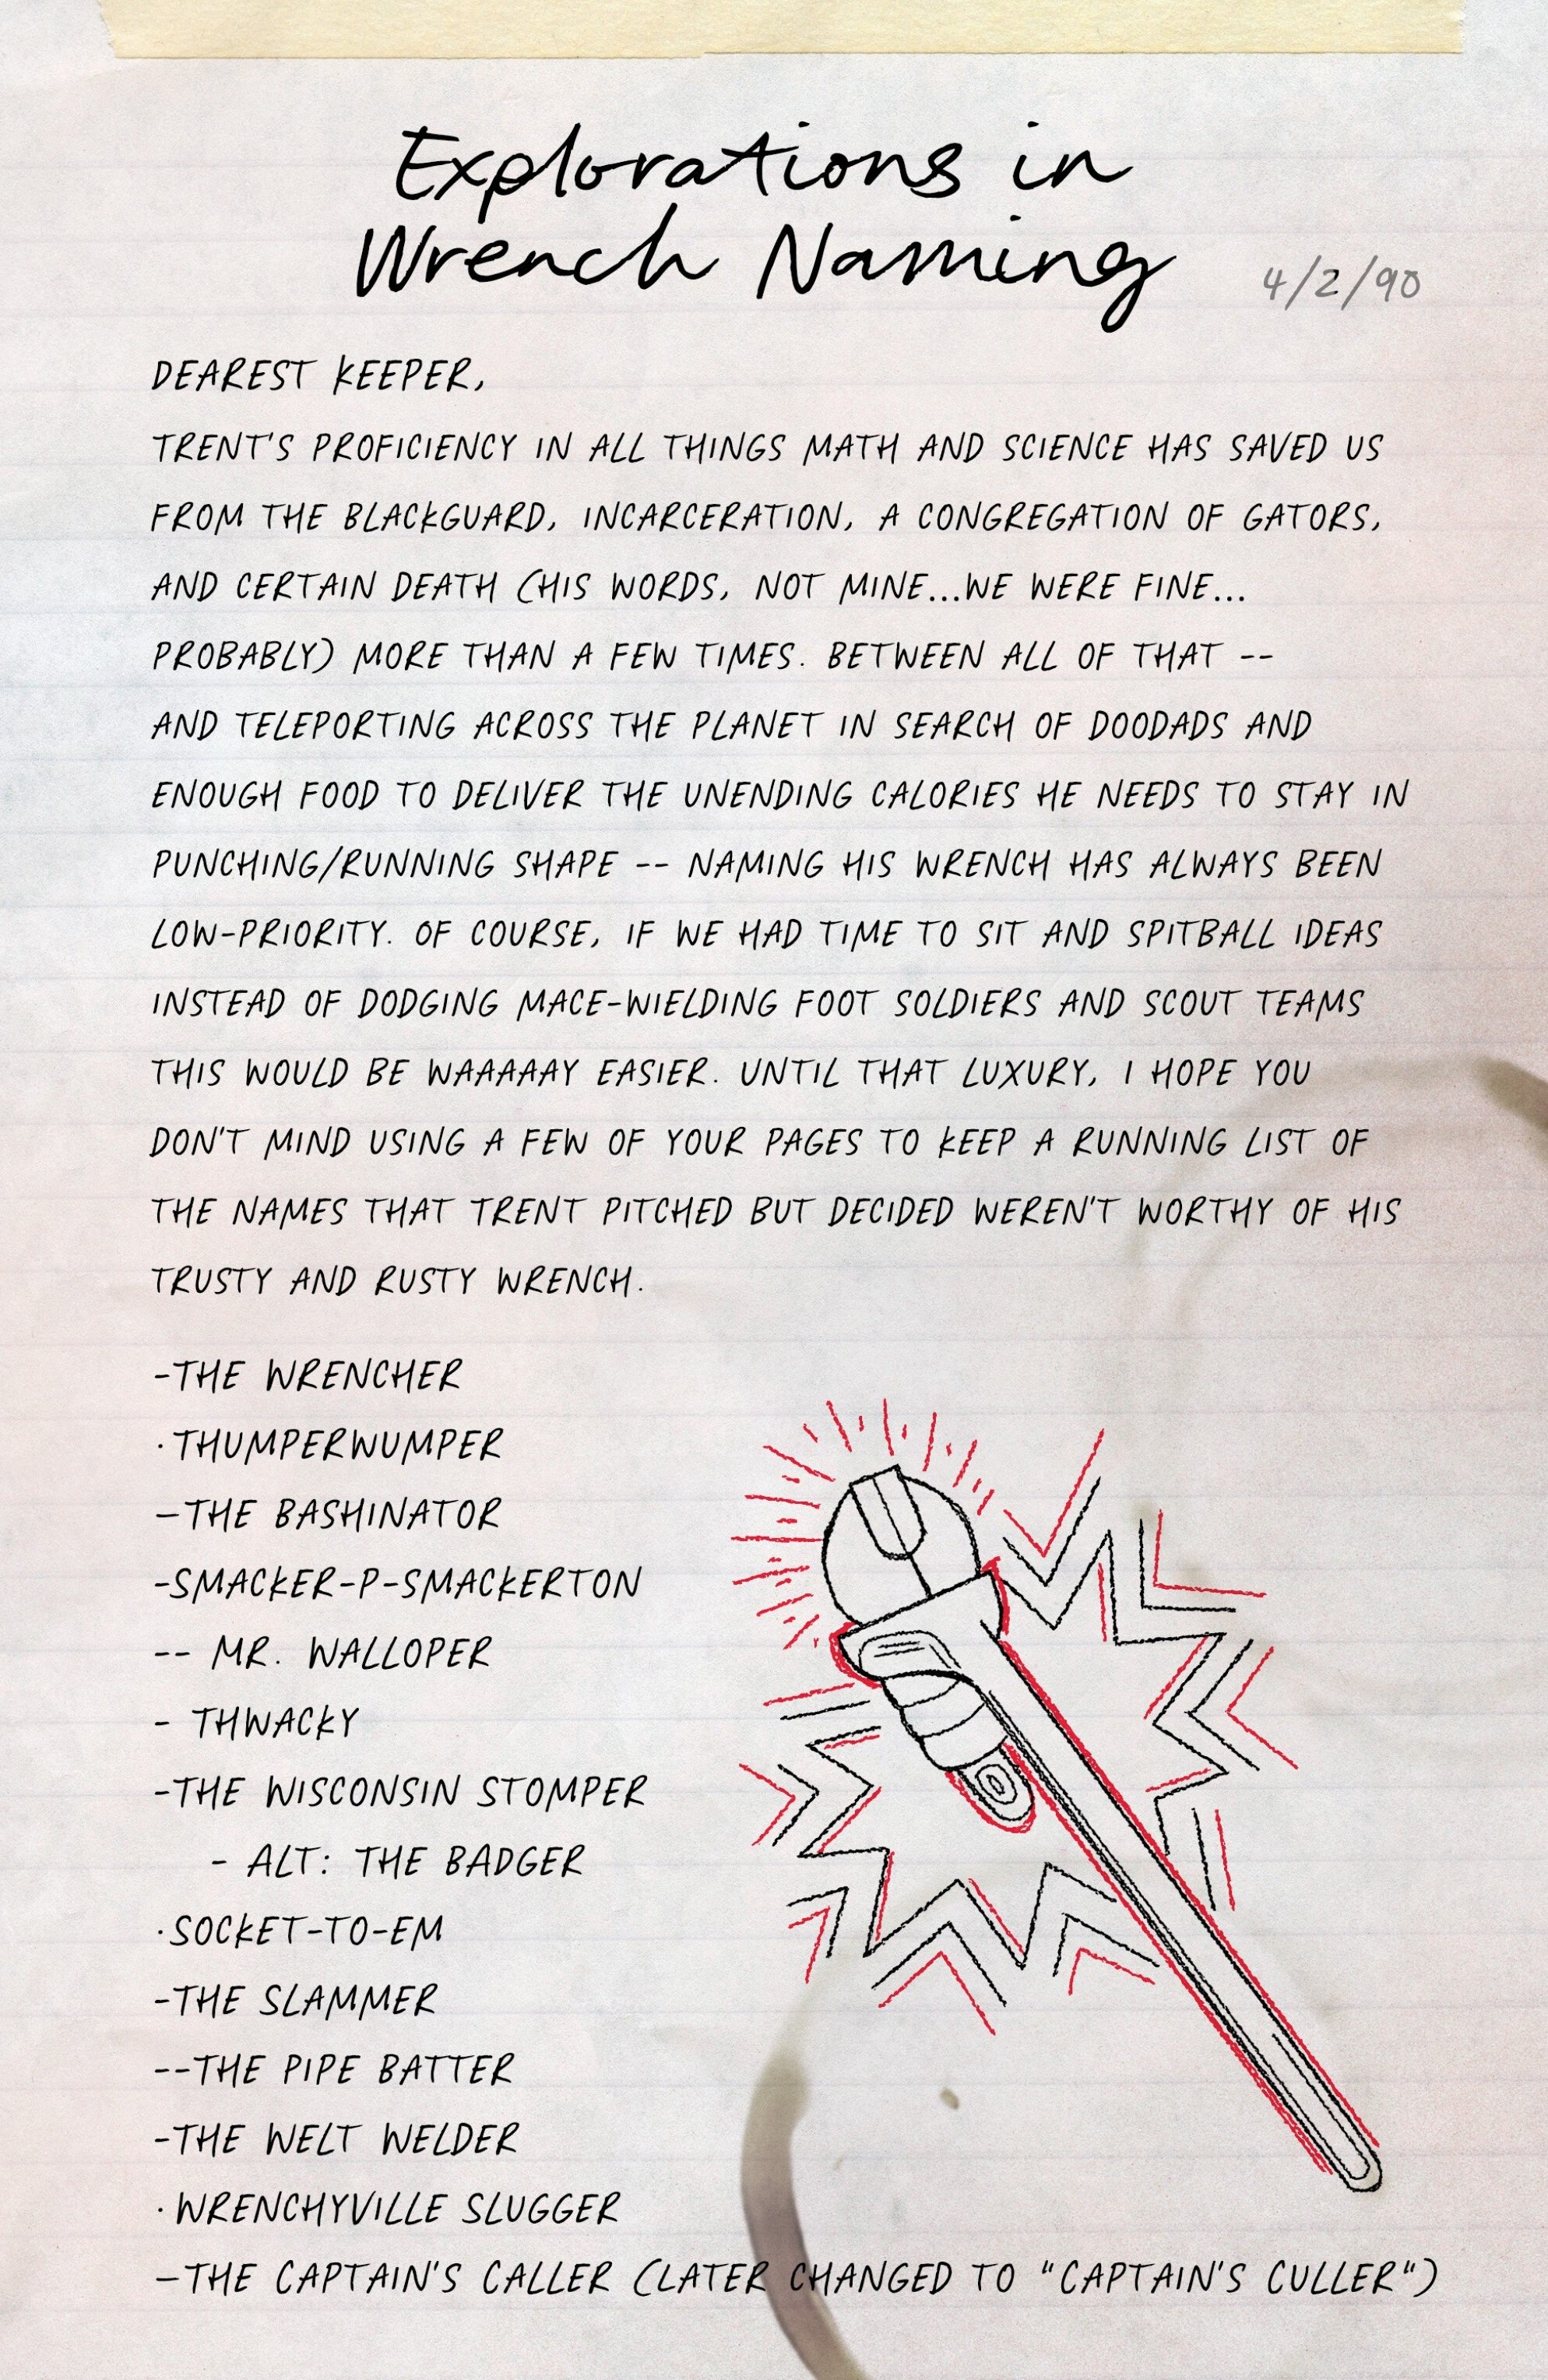 Explorations in
Wrench Naming
4/2/90
DEAREST KEEPER,
TRENT'S PROFICIENCY IN ALL THINGS MATH AND SCIENCE HAS SAVED US
FROM THE BLACKGUARD, INCARCERATION, A CONGREGATION OF GATORS,
AND CERTAIN DEATH (HIS WORDS, NOT MINE...WE WERE FINE...
PROBABLY) MORE THAN A FEW TIMES. BETWEEN ALL OF THAT --
AND TELEPORTING ACROSS THE PLANET IN SEARCH OF DOODADS AND
ENOUGH FOOD TO DELIVER THE UNENDING CALORIES HE NEEDS TO STAY IN
PUNCHING/RUNNING SHAPE -- NAMING HIS WRENCH HAS ALWAYS BEEN
LOW-PRIORITY. OF COURSE, IF WE HAD TIME TO SIT AND SPITBALL IDEAS
INSTEAD OF DODGING MACE-WIELDING FOOT SOLDIERS AND SCOUT TEAMS
THIS WOULD BE WAAAAAY EASIER. UNTIL THAT LUXURY, I HOPE YOU
DON'T MIND USING A FEW OF YOUR PAGES TO KEEP A RUNNING LIST OF
THE NAMES THAT TRENT PITCHED BUT DECIDED WEREN'T WORTHY OF HIS
TRUSTY AND RUSTY WRENCH.
-THE WRENCHER
·THUMPERWUMPER
-THE BASHINATOR
-SMACKER-P-SMACKERTON
-- MR. WALLOPER
- THWACKY
-THE WISCONSIN STOMPER
- ALT: THE BADGER
·SOCKET-TO-EM
-THE SLAMMER
--THE PIPE BATTER
-THE WELT WELDER
·WRENCHYVILLE SLUGGER
-THE CAPTAIN'S CALLER (LATER CHANGED TO "CAPTAIN'S CULLER")